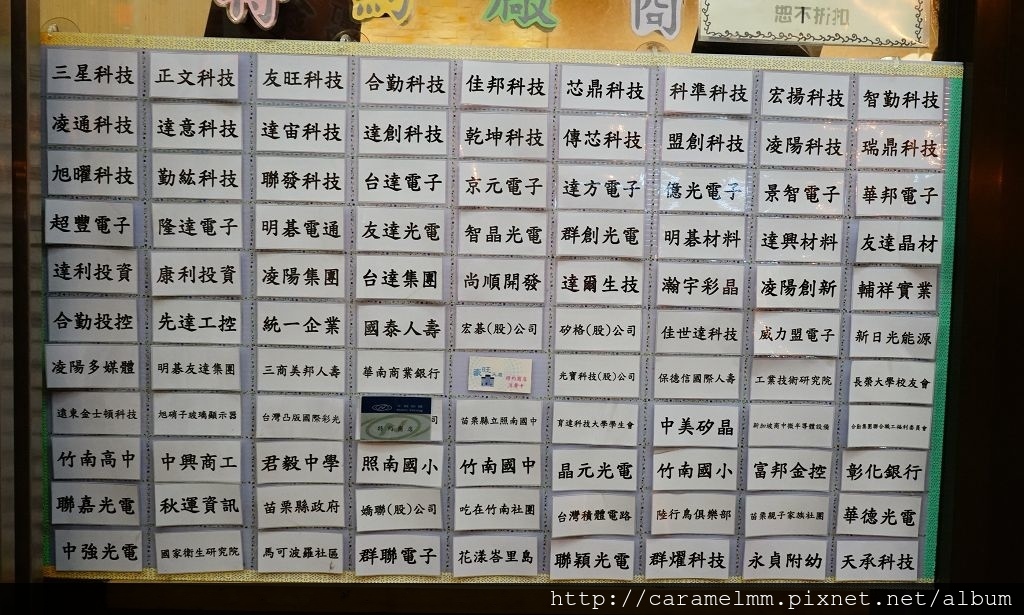 特約廠商
恕不折扣
三星科技 正文科技 友旺科技 合勤科技 佳邦科技 芯鼎科技 科準科技 宏揚科技 智勤科技
凌通科技 達意科技 達宙科技 達創科技 乾坤科技 傳芯科技 盟創科技 凌陽科技 瑞鼎科技
旭曜科技 勤紘科技 聯發科技 台達電子 京元電子 達方電子 億光電子 景智電子 華邦電子
超豐電子 隆達電子 明碁電通 友達光電 智晶光電 群創光電 明碁材料 達興材料 友達晶材
達利投資 康利投資 凌陽集團 台達集團 尚順開發 達爾生技 瀚宇彩晶 凌陽創新 輔祥實業
合勤投控 先達工控 統一企業 國泰人壽 宏碁(股)公司 矽格(股)公司 佳世達科技 威力盟電子 新日光能源
凌陽多媒體 明碁友達集團 三商美邦人壽 華南商業銀行 光寶科技(股)公司 保德信國際人壽 工業技術研究院 長榮大學校友會
遠東金士頓科技 旭硝子玻璃顯示器 台灣凸版國際彩光 特約商店 苗栗縣立照南國中 育達科技大學學生會 中美矽晶 新加坡商中微半導體設備 合勤集團聯合職工福利委員會
竹南高中 中興商工 君毅中學 照南國小 竹南國中 晶元光電 竹南國小 富邦金控 彰化銀行
聯嘉光電 秋運資訊 苗栗縣政府 嬌聯(股)公司 吃在竹南社團 台灣積體電路 陸行鳥俱樂部 苗栗親子家族社團 華德光電
中強光電 國家衛生研究院 馬可波羅社區 群聯電子 花漾峇里島 聯穎光電 群燿科技 永貞附幼 天承科技
http://caramelmm.pixnet.net/album